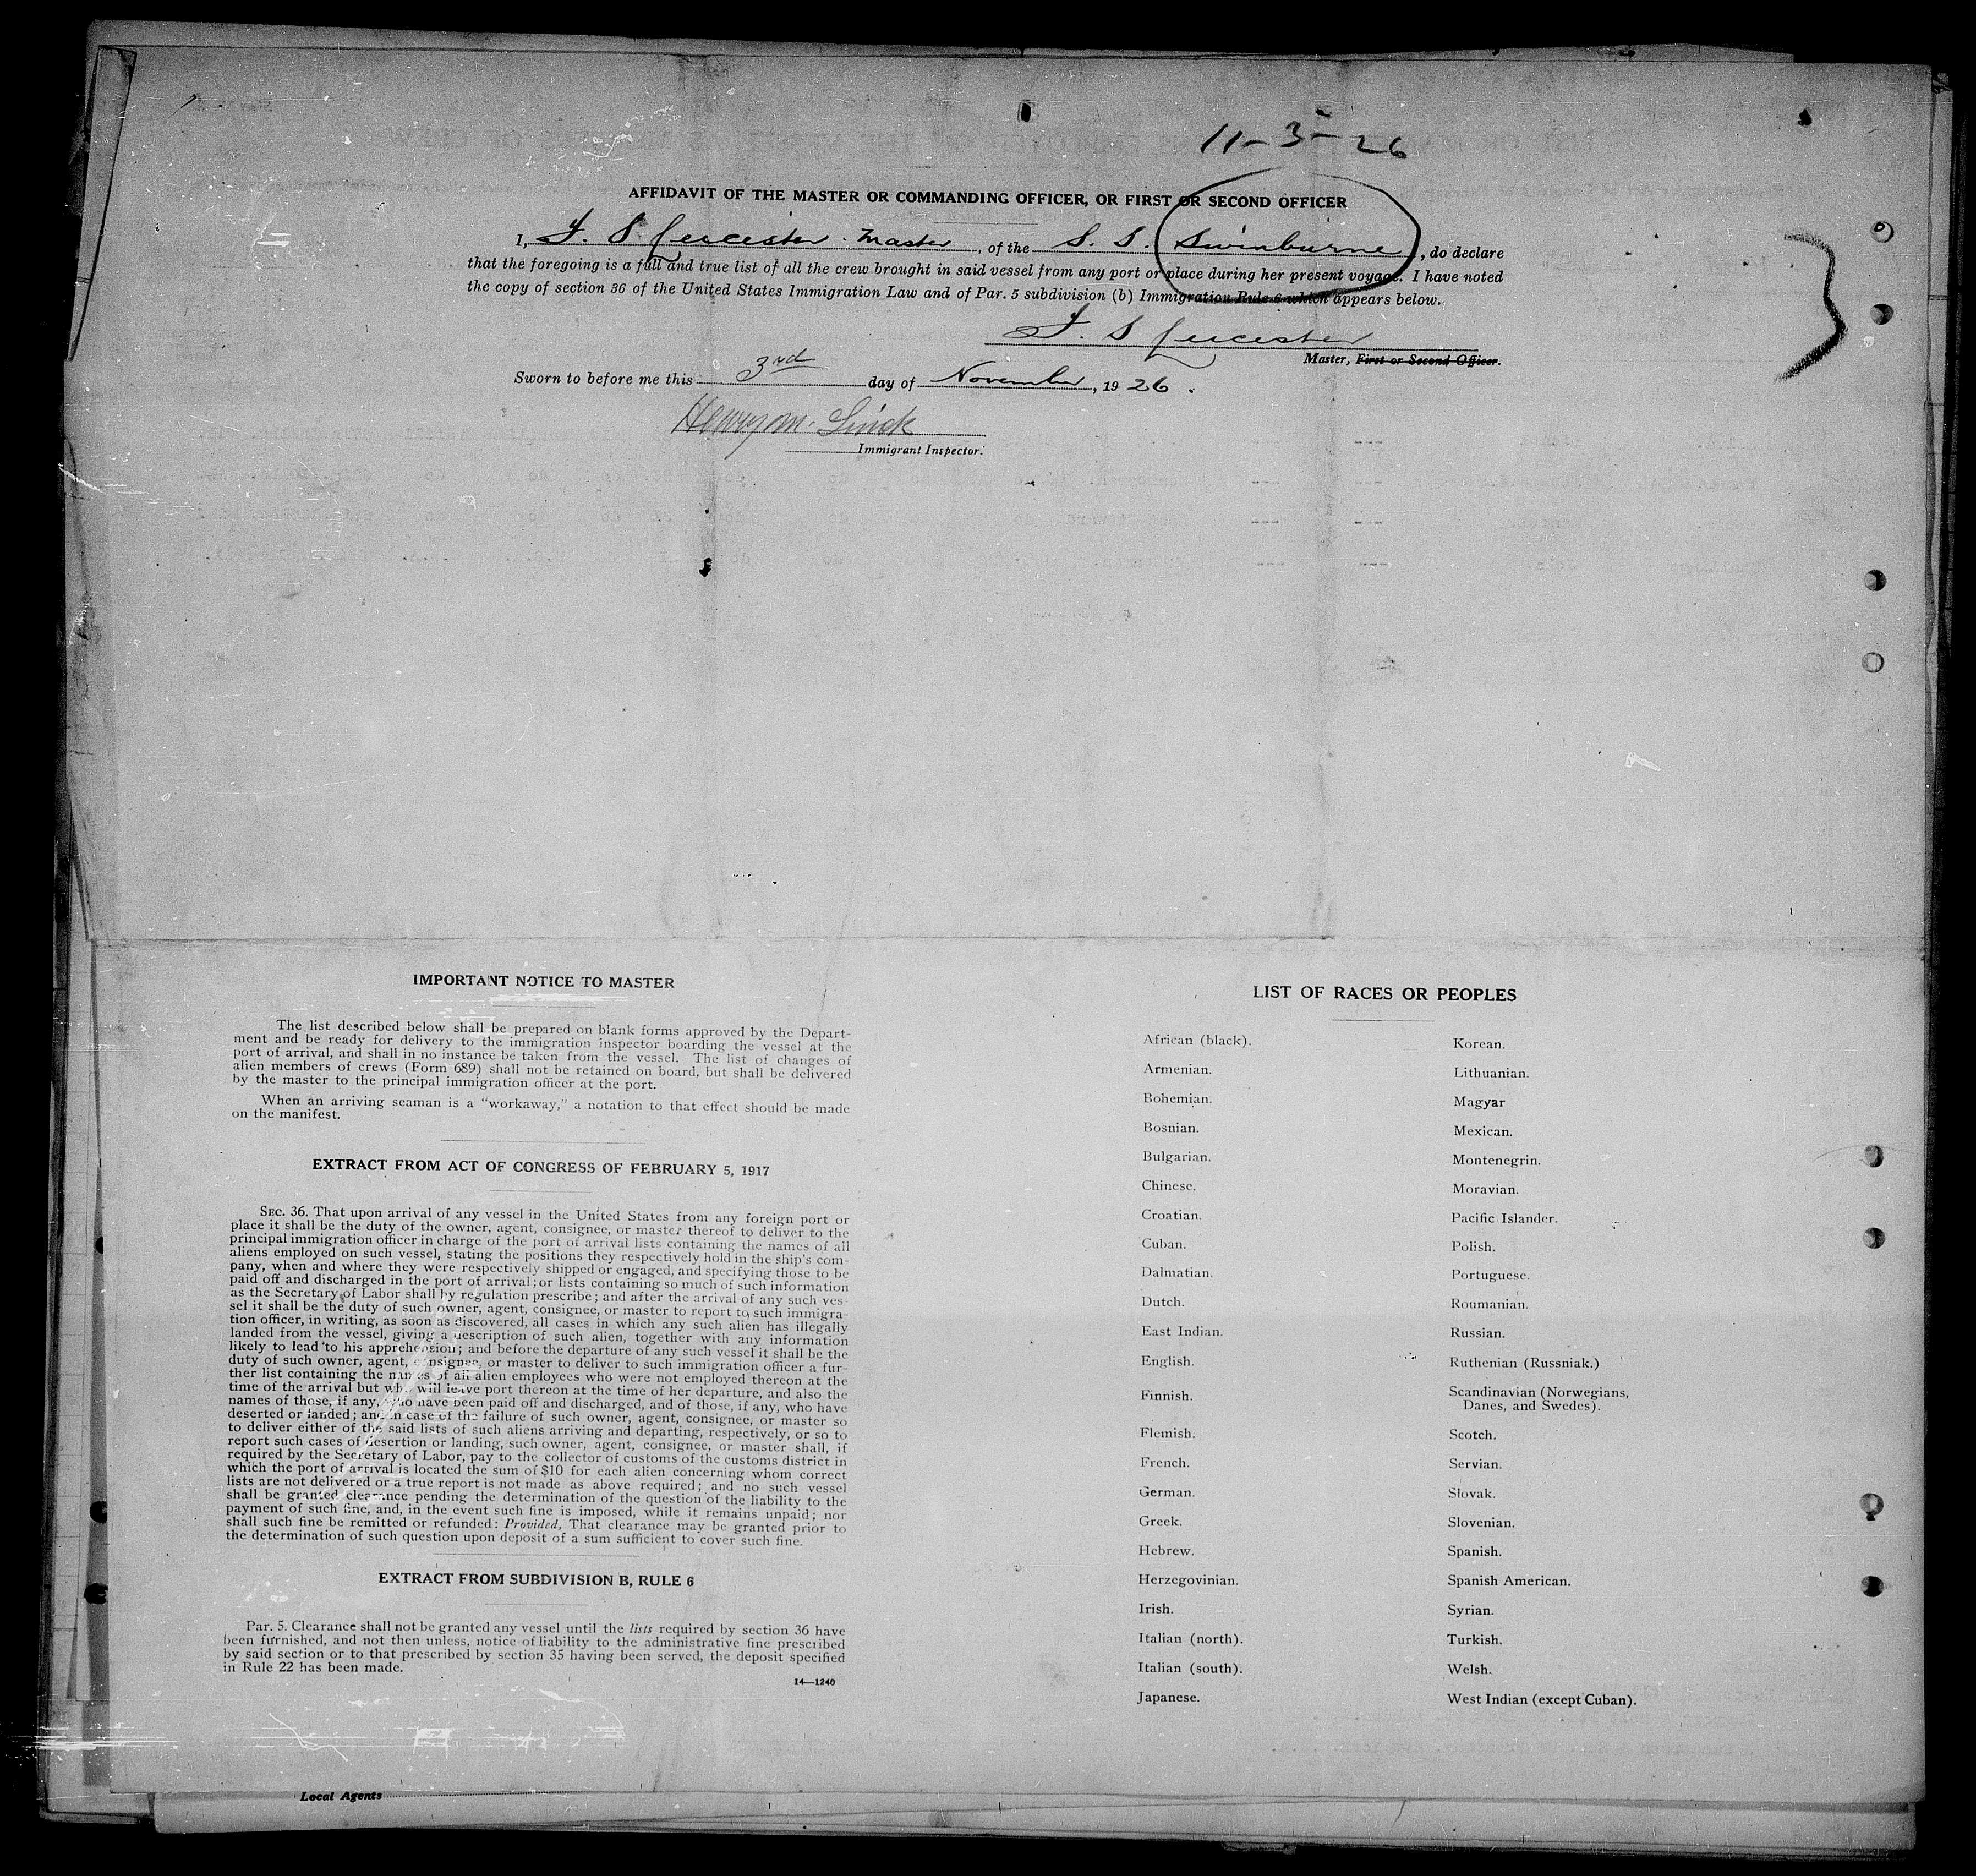 11-3-26
AFFIDAVIT OF THE MASTER OR COMMANDING OFFICER, OR FIRST OR SECOND OFFICER
I, J. S Leicester. Master, of the S. S. Swinburne, do declare
that the foregoing is a full and true list of all the crew brought in said vessel from any port or place during her present voyage. I have noted
the copy of section 36 of the United States Immigration Law and of Par. 5 subdivision (b) Immigration Rule 6 which appears below.
J. S Leicester
Master, First or Second Officer.
Sworn to before me this 3rd day of November, 19 26.
Henry M.
Immigrant Inspector.
IMPORTANT NOTICE TO MASTER
The list described below shall be prepared on blank forms approved by the Depart-
ment and be ready for delivery to the immigration inspector boarding the vessel at the
port of arrival, and shall in no instance be taken from the vessel. The list of changes of
alien members of crews (Form 689) shall not be retained on board, but shall be delivered
by the master to the principal immigration officer at the port.
When an arriving seaman is a "workaway," a notation to that effect should be made
on the manifest.
EXTRACT FROM ACT OF CONGRESS OF FEBRUARY 5, 1917
SEC. 36. That upon arrival of any vessel in the United States from any foreign port or
place it shall be the duty of the owner, agent, consignee, or master thereof to deliver to the
principal immigration officer in charge of the port of arrival lists containing the names of all
aliens employed on such vessel, stating the positions they respectively hold in the ship's com-
pany, when and where they were respectively shipped or engaged, and specifying those to be
paid off and discharged in the port of arrival; or lists containing so much of such information
as the Secretary of Labor shall by regulation prescribe; and after the arrival of any such ves-
sel it shall be the duty of such owner, agent, consignee, or master to report to such immigra-
tion officer, in writing, as soon as discovered, all cases in which any such alien has illegally
landed from the vessel, giving a description of such alien, together with any information
likely to lead to his apprehension; and before the departure of any such vessel it shall be the
duty of such owner, agent, consignee, or master to deliver to such immigration officer a fur-
ther list containing the names of all alien employees who were not employed thereon at the
time of the arrival but who will leave port thereon at the time of her departure, and also the
names of those, if any, who have been paid off and discharged, and of those, if any, who have
deserted or landed; and in case of the failure of such owner, agent, consignee, or master so
to deliver either of the said lists of such aliens arriving and departing, respectively, or so to
report such cases of desertion or landing, such owner, agent, consignee, or master shall, if
required by the Secretary of Labor, pay to the collector of customs of the customs district in
which the port of arrival is located the sum of $10 for each alien concerning whom correct
lists are not delivered or a true report is not made as above required; and no such vessel
shall be granted clearance pending the determination of the question of the liability to the
payment of such fine, and, in the event such fine is imposed, while it remains unpaid; nor
shall such fine be remitted or refunded: Provided, That clearance may be granted prior to
the determination of such question upon deposit of a sum sufficient to cover such fine.
EXTRACT FROM SUBDIVISION B, RULE 6
Par. 5. Clearance shall not be granted any vessel until the lists required by section 36 have
been furnished, and not then unless, notice of liability to the administrative fine prescribed
by said section or to that prescribed by section 35 having been served, the deposit specified
in Rule 22 has been made.
14—1240
LIST OF RACES OR PEOPLES
African (black).
Armenian.
Bohemian.
Bosnian.
Bulgarian.
Chinese.
Croatian.
Cuban.
Dalmatian.
Dutch.
East Indian.
English.
Finnish.
Flemish.
French.
German.
Greek.
Hebrew.
Herzegovinian.
Irish.
Italian (north).
Italian (south).
Japanese.
Korean.
Lithuanian.
Magyar
Mexican.
Montenegrin.
Moravian.
Pacific Islander.
Polish.
Portuguese.
Roumanian.
Russian.
Ruthenian (Russniak.)
Scandinavian (Norwegians,
Danes, and Swedes).
Scotch.
Servian.
Slovak.
Slovenian.
Spanish.
Spanish American.
Syrian.
Turkish.
Welsh.
West Indian (except Cuban).
Local Agents